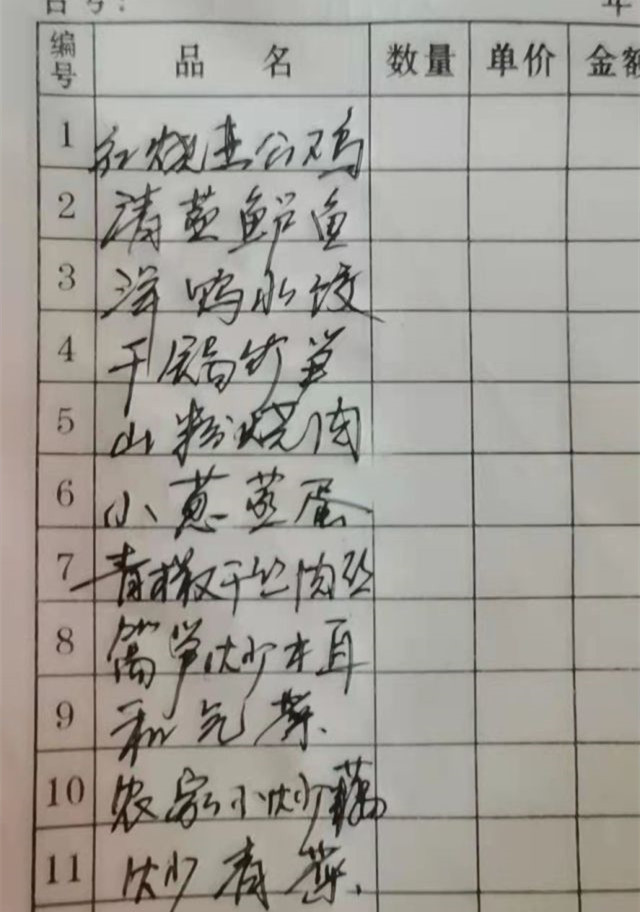 台号： 年
编号 品名 数量 单价 金额
1 红烧土公鸡
2 清蒸鲈鱼
3 洋鸭水饺
4 干锅竹笋
5 山粉烧肉
6 小葱蒸蛋
7 青椒干丝肉丝
8 莴笋炒木耳
9 和气菜
10 农家小炒藕
11 炒青菜